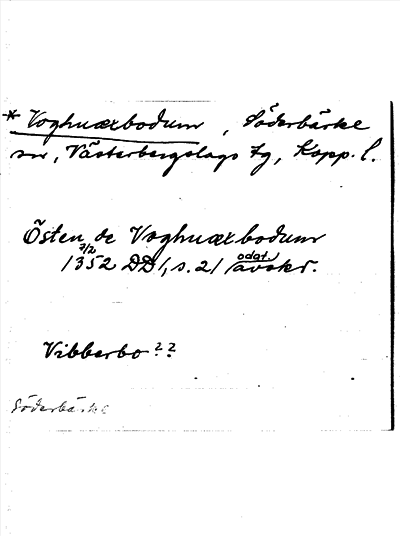 * Voghuæxbodum, Söderbärke
sn, Västerbergslags fg, Kopp. l.
Östen de Voghuæxbodum
7/2
1352 DD 1, s. 21 odat. avskr.
Vibberbo ??
Söderbärke